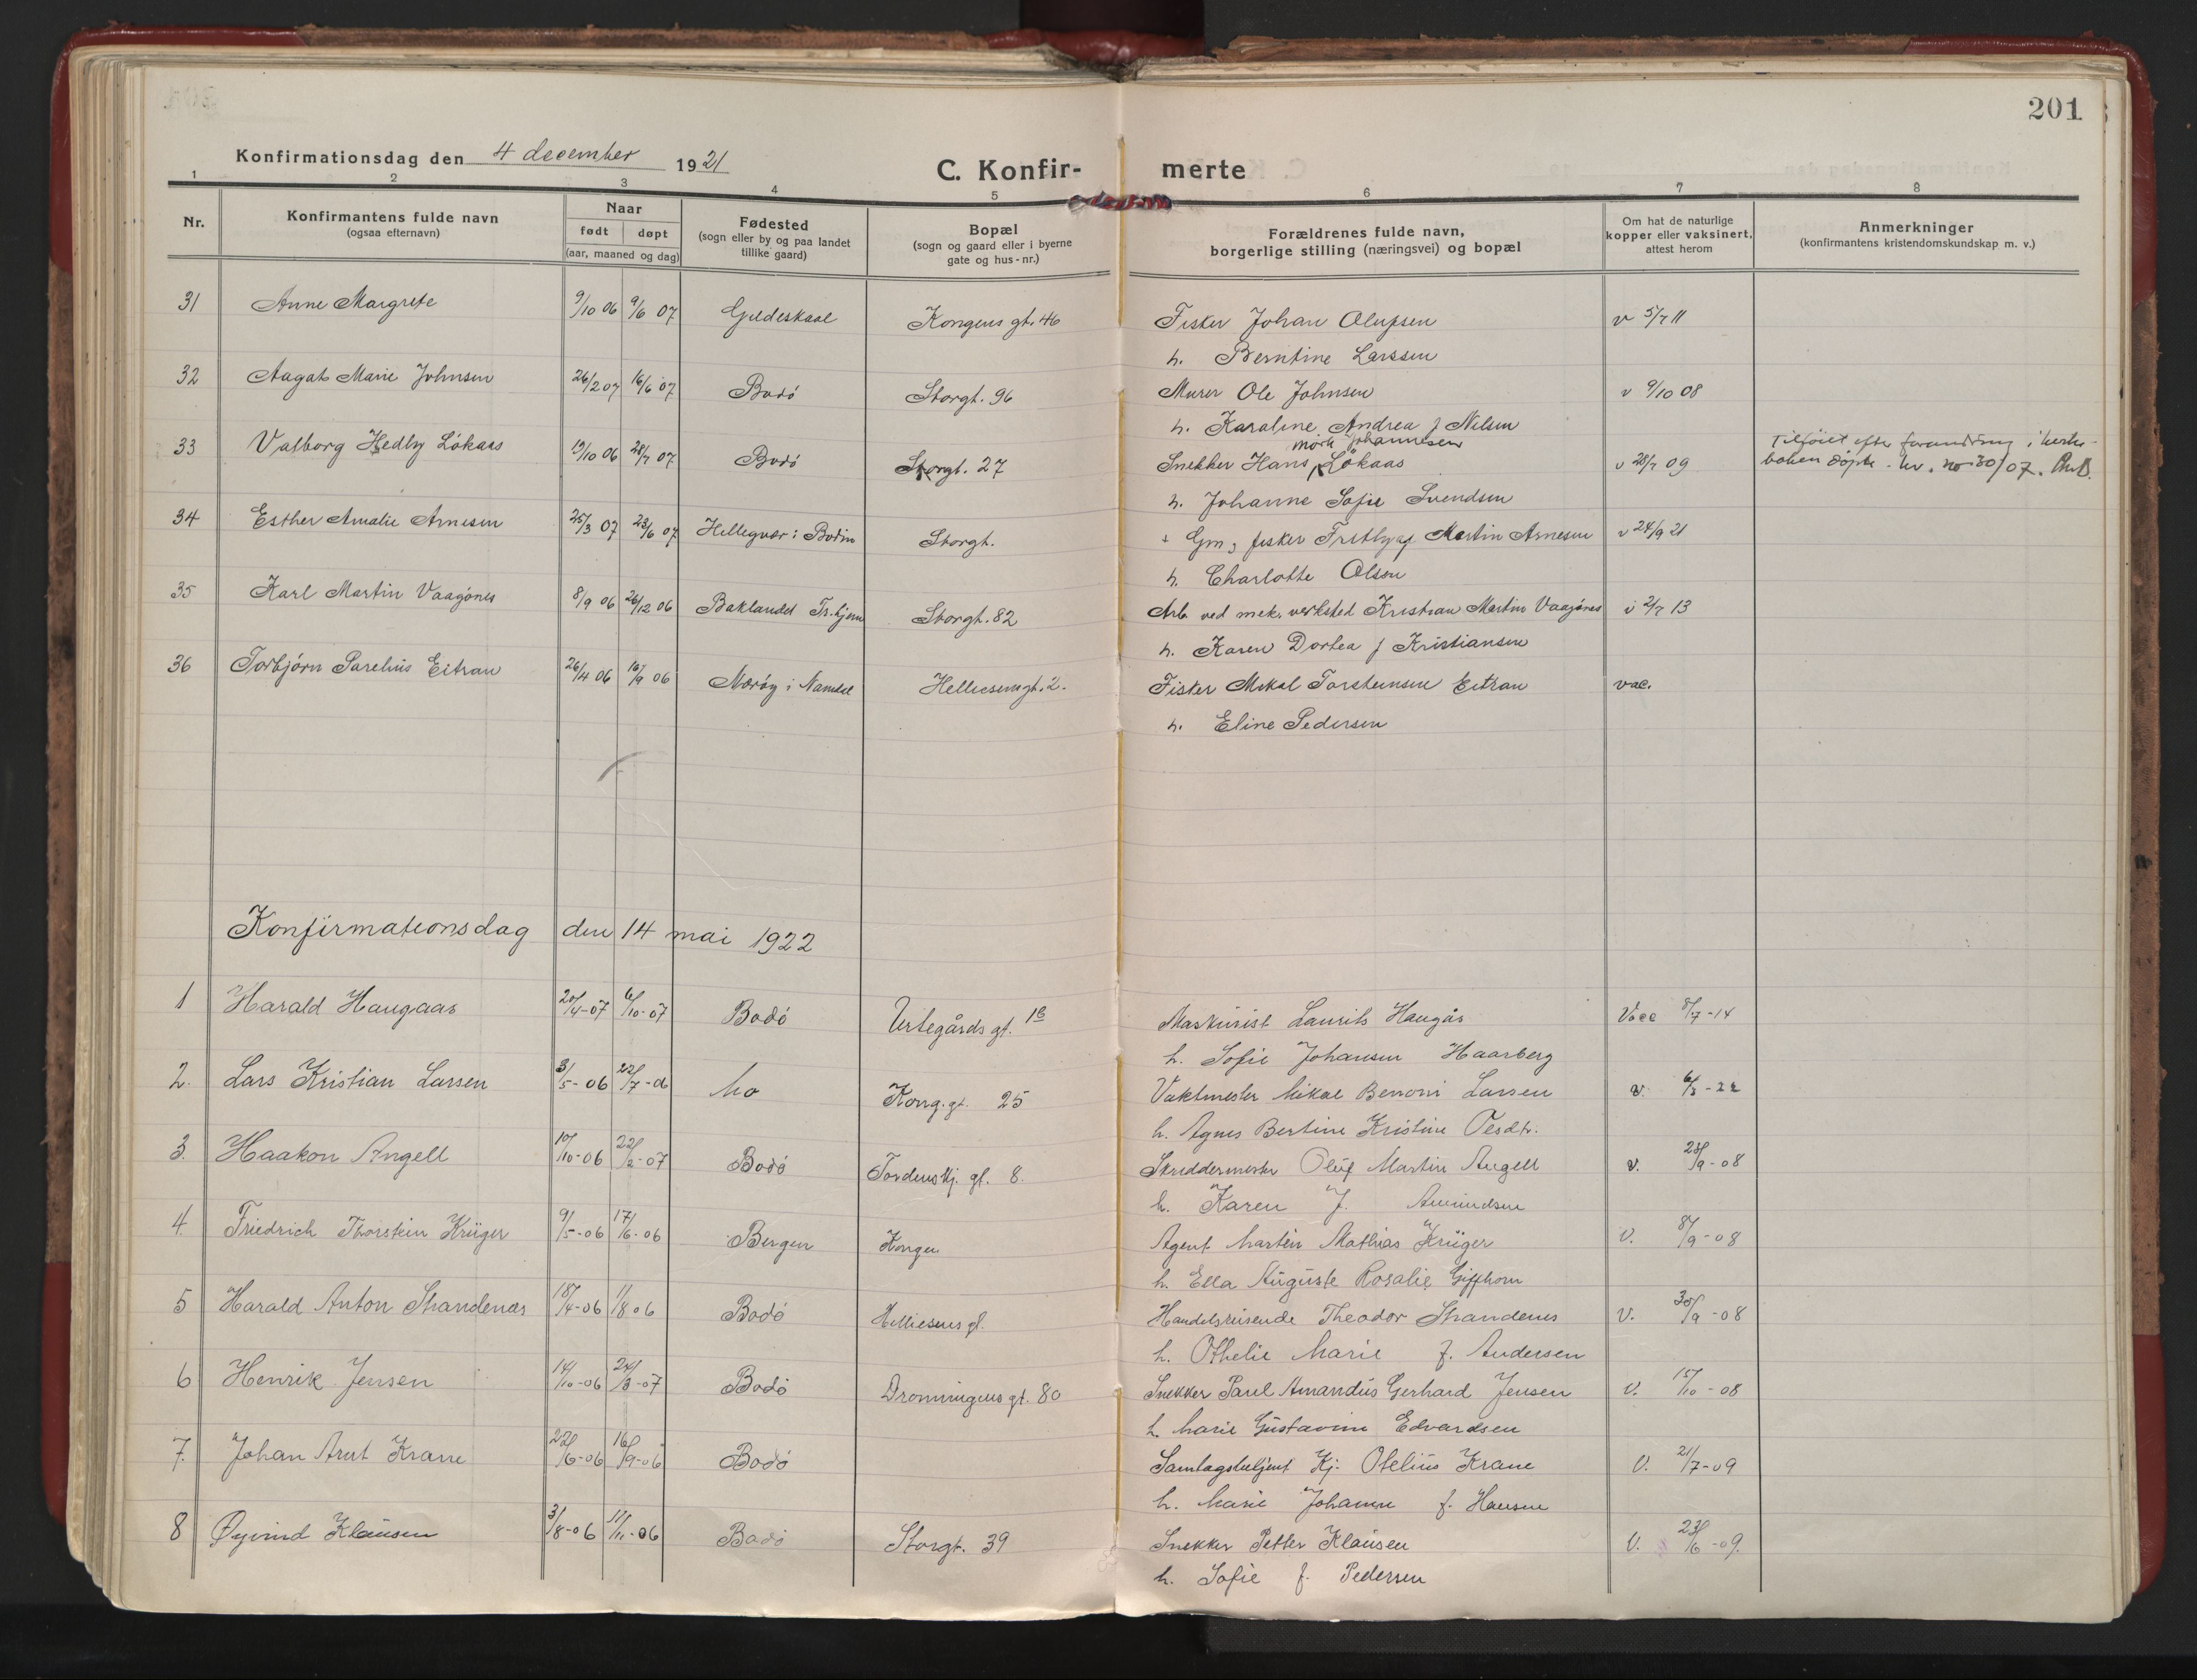 201
Konfirmationsdag den 4 december 1921
C. Konfir- merte
1 2 3 4 5 6 7 8
Nr.
Konfirmantens fulde navn
(ogsaa efternavn)
Naar
født døpt
(aar, maaned og dag)
Fødested
(sogn eller by og paa landet
tillike gaard)
Bopæl
(sogn og gaard eller i byerne
gate og hus-nr.)
Forældrenes fulde navn,
borgerlige stilling (næringsvei) og bopæl
Om hat de naturlige
kopper eller vaksinert,
attest herom
Anmerkninger
(konfirmantens kristendomskundskap m. v.)
31 Anne Margrete 9/10 06 9/6 07 Gildeskaal Kongens gt. 46 Fisker Johan Olufsen v 5/7 11
h. Berntine Larssen
32 Aagat Marie Johnsen 26/2 07 16/6 07 Bodó Storgt. 96 Murer Ole Johnsen v 9/10 08
h. Karaline Andrea f Nilsen
33 Valborg Hedby Lókaas 19/10 06 28/7 07 Bodó Storgt. 27 Snekker Hans Mörk Johannesen Lókaas v 28/7 09 Tilføiet efter forandring i kirke-
boken døpte. kv. no 30/07.
h. Johanne Sofie Svendsen
34 Esther Amalie Arnesen 25/3 07 23/6 07 Helligvær i Bodin Storgt. + Gm, fisker Martin Arnesen v 24/9 21
h. Charlotte Olsen
35 Karl Martin Vaagónes 8/9 06 26/12 06 Baklandet Tr.hjem Storgt. 82 Arb. ved mek. verksted Kristian Martin Vaagónes v 2/7 13
h. Karen Dortea f Kristiansen
36 Torbjórn Parelius Eitran 26/4 06 16/9 06 Næróy i Namdal Helliesensgt. 2. Fisker Mikal Torsteinsen Eitran vac.
h. Eline Pedersen
Konfirmationsdag den 14 mai 1922
1 Harald Haugaas 20/4-07 6/10-07 Bodó Urtegårds gt. 1B Maskinist Laurits Haugås Vacc 8/7-14
h. Sofie Johansen Haarberg
2. Lars Kristian Larsen 3/5-06 22/7-06 Mo Kong.gt. 25 Vaktmester Mikal Benoni Larsen v. 6/3-22
h. Agnes Bertine Kristine
3. Haakon Angell 10/10-06 22/2-07 Bodó Tordenskj. gt. 8. Skreddermester Oluf Martin Angell v. 23/9-08
h. Karen J. Amundsen
4. Friedrich Thorstein Krüger 9/5-06 17/6-06 Bergen Kongen Agent Martin Mathias Krüger V. 8/9-08
h. Ella Auguste Rosalie Giffhorn
5 Harald Anton Strandenæs 18/4-06 1/8 06 Bodó Helliesens gt. Handelsreisende Theodor Strandenes V. 30/9-08
h. Othelie Marie f. Andersen
6 Henrik Jensen 14/10-06 24/3-07 Bodó Dronningens gt. 80 Snekker Paul Amandus Gerhard Jensen V. 15/10-08
h. Marie Gustavine Edvardsen
7. Johan Arnt Krane 28/6-06 16/9-06 Bodó Samlagsbetjent Kj. Otelius Krane V. 21/7-09
h. Marie Johanne f. Hansen
8 Øyvind Klausen 3/8-06 11/11-06 Bodó Storgt. 39 Snekker Petter Klausen V. 23/6-09.
h. Sofie f. Pedersen